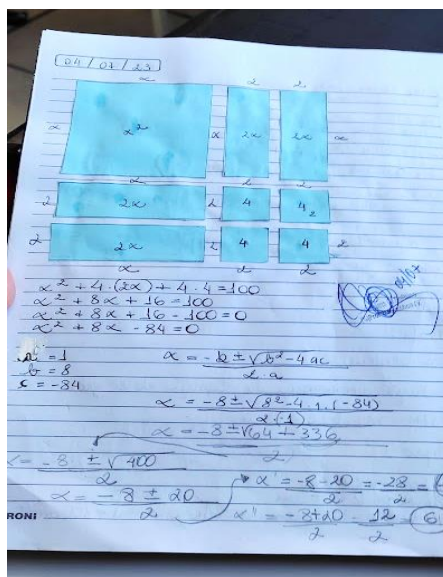 04 / 07 / 23
x 2 2
x x² x 2x 2x x
x 2 2
2 2x 2 4 4 2
2 2x 2 4 4 2
x 2 2
x² + 4 · (2x) + 4 · 4 = 100
x² + 8x + 16 = 100
x² + 8x + 16 - 100 = 0
x² + 8x - 84 = 0
a = 1
b = 8
c = -84
x = -b ± √b² - 4ac / 2 · a
x = -8 ± √8² - 4 · 1 · (-84) / 2 · (1)
x = -8 ± √64 + 336 / 2
x = -8 ± √400 / 2
x = -8 ± 20 / 2
x' = -8 - 20 / 2 = -28 / 2 =
x'' = -8 + 20 / 2 12 / 2 6
RONI
04/07